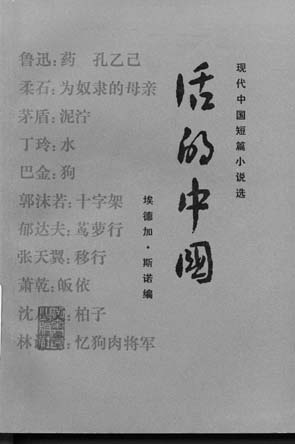 鲁迅：药 孔乙己
柔石：为奴隶的母亲
茅盾：泥泞
丁玲：水
巴金：狗
郭沫若：十字架
郁达夫：茑萝行
张天翼：移行
萧乾：皈依
沈：柏子
林：忆狗肉将军
活的中國
现代中国短篇小说选
埃德加·斯诺编